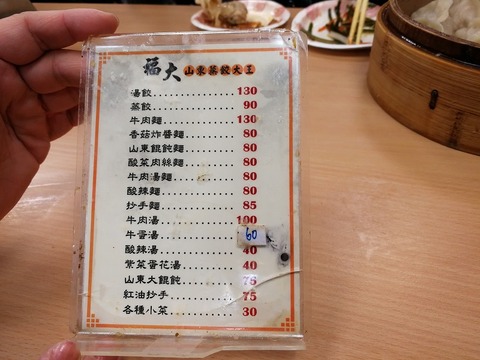 福大山東蒸餃大王
湯餃..........130
蒸餃..........90
牛肉麵..........130
香菇炸醬麵.......80
山東餛飩麵.......80
酸菜肉絲麵.......80
牛肉湯麵.........80
酸辣麵..........80
抄手麵..........85
牛肉湯..........100
牛雜湯..........60
酸辣湯..........40
紫菜蛋花湯.......40
山東大餛飩.......75
紅油抄手.........75
各種小菜.........30